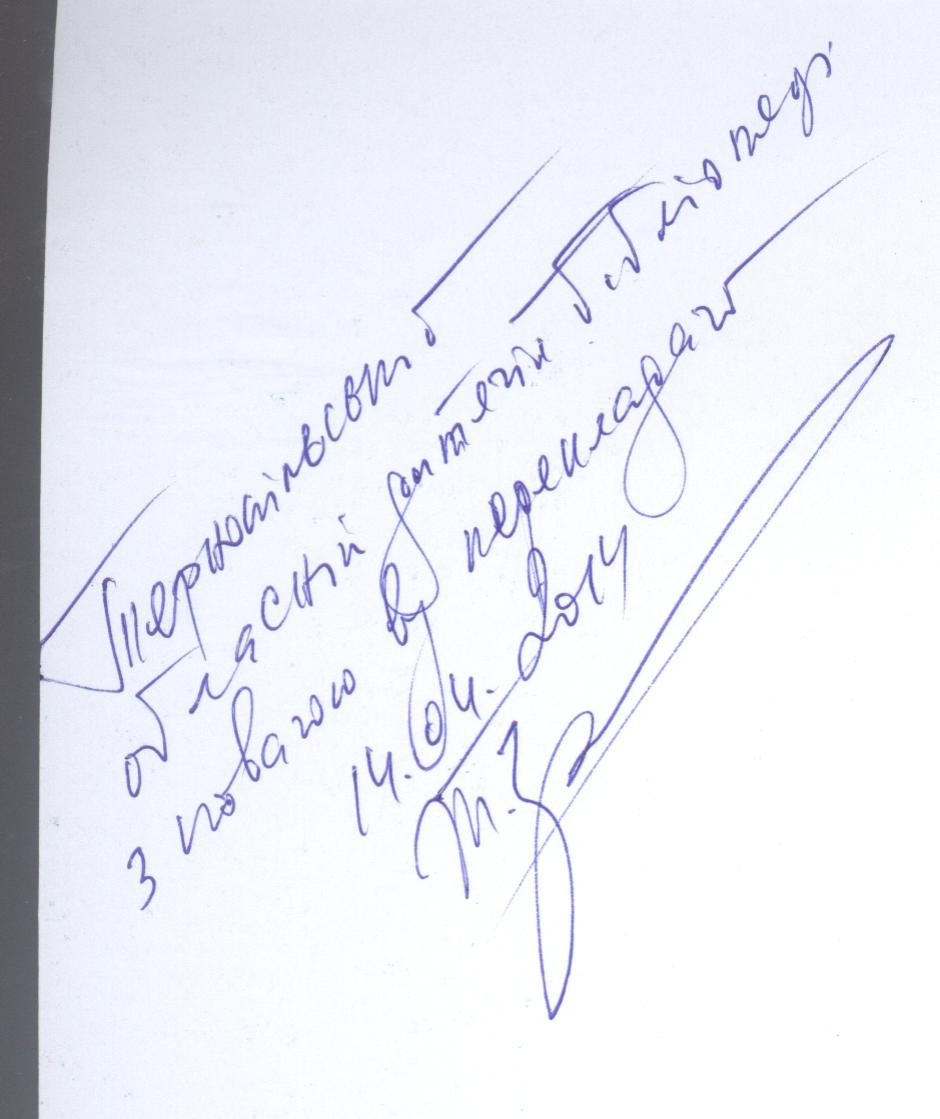 Тернопільській
обласній дитячій бібліотеці
з повагою від перекладача
14.04.2014